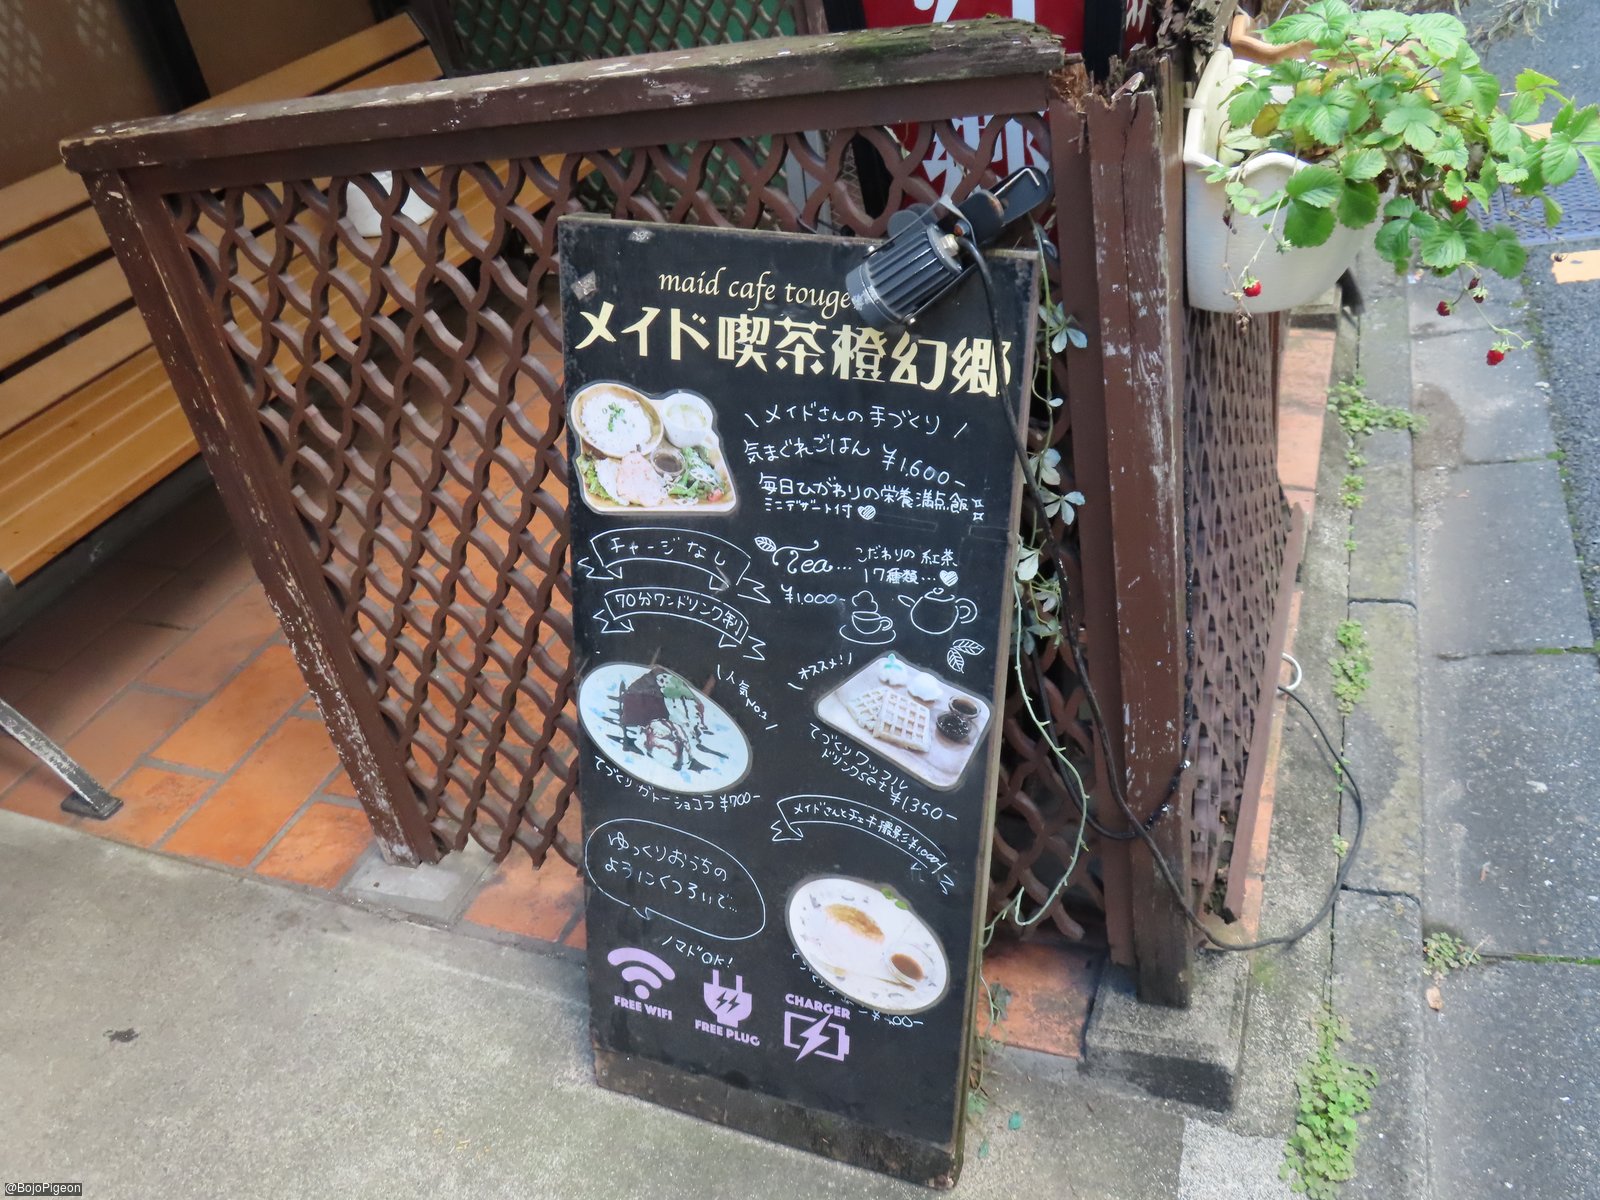 maid cafe touge
メイド喫茶橙幻郷
\ メイドさんの手づくり /
気まぐれごはん ¥1,600-
毎日ひがわりの栄養満点飯
ミニデザート付
チャージなし
70分ワンドリンク制
Tea...
こだわりの紅茶
17種類...
¥1,000-
\人気No1/
てづくりガトーショコラ ¥700-
オススメ!
てづくりワッフル
ドリンクset ¥1350-
メイドさんとチェキ撮影¥1,000
ゆっくりおうちの
ようにくつろいで...
ノマドOK!
FREE WIFI
FREE PLUG
CHARGER
@BojoPigeon